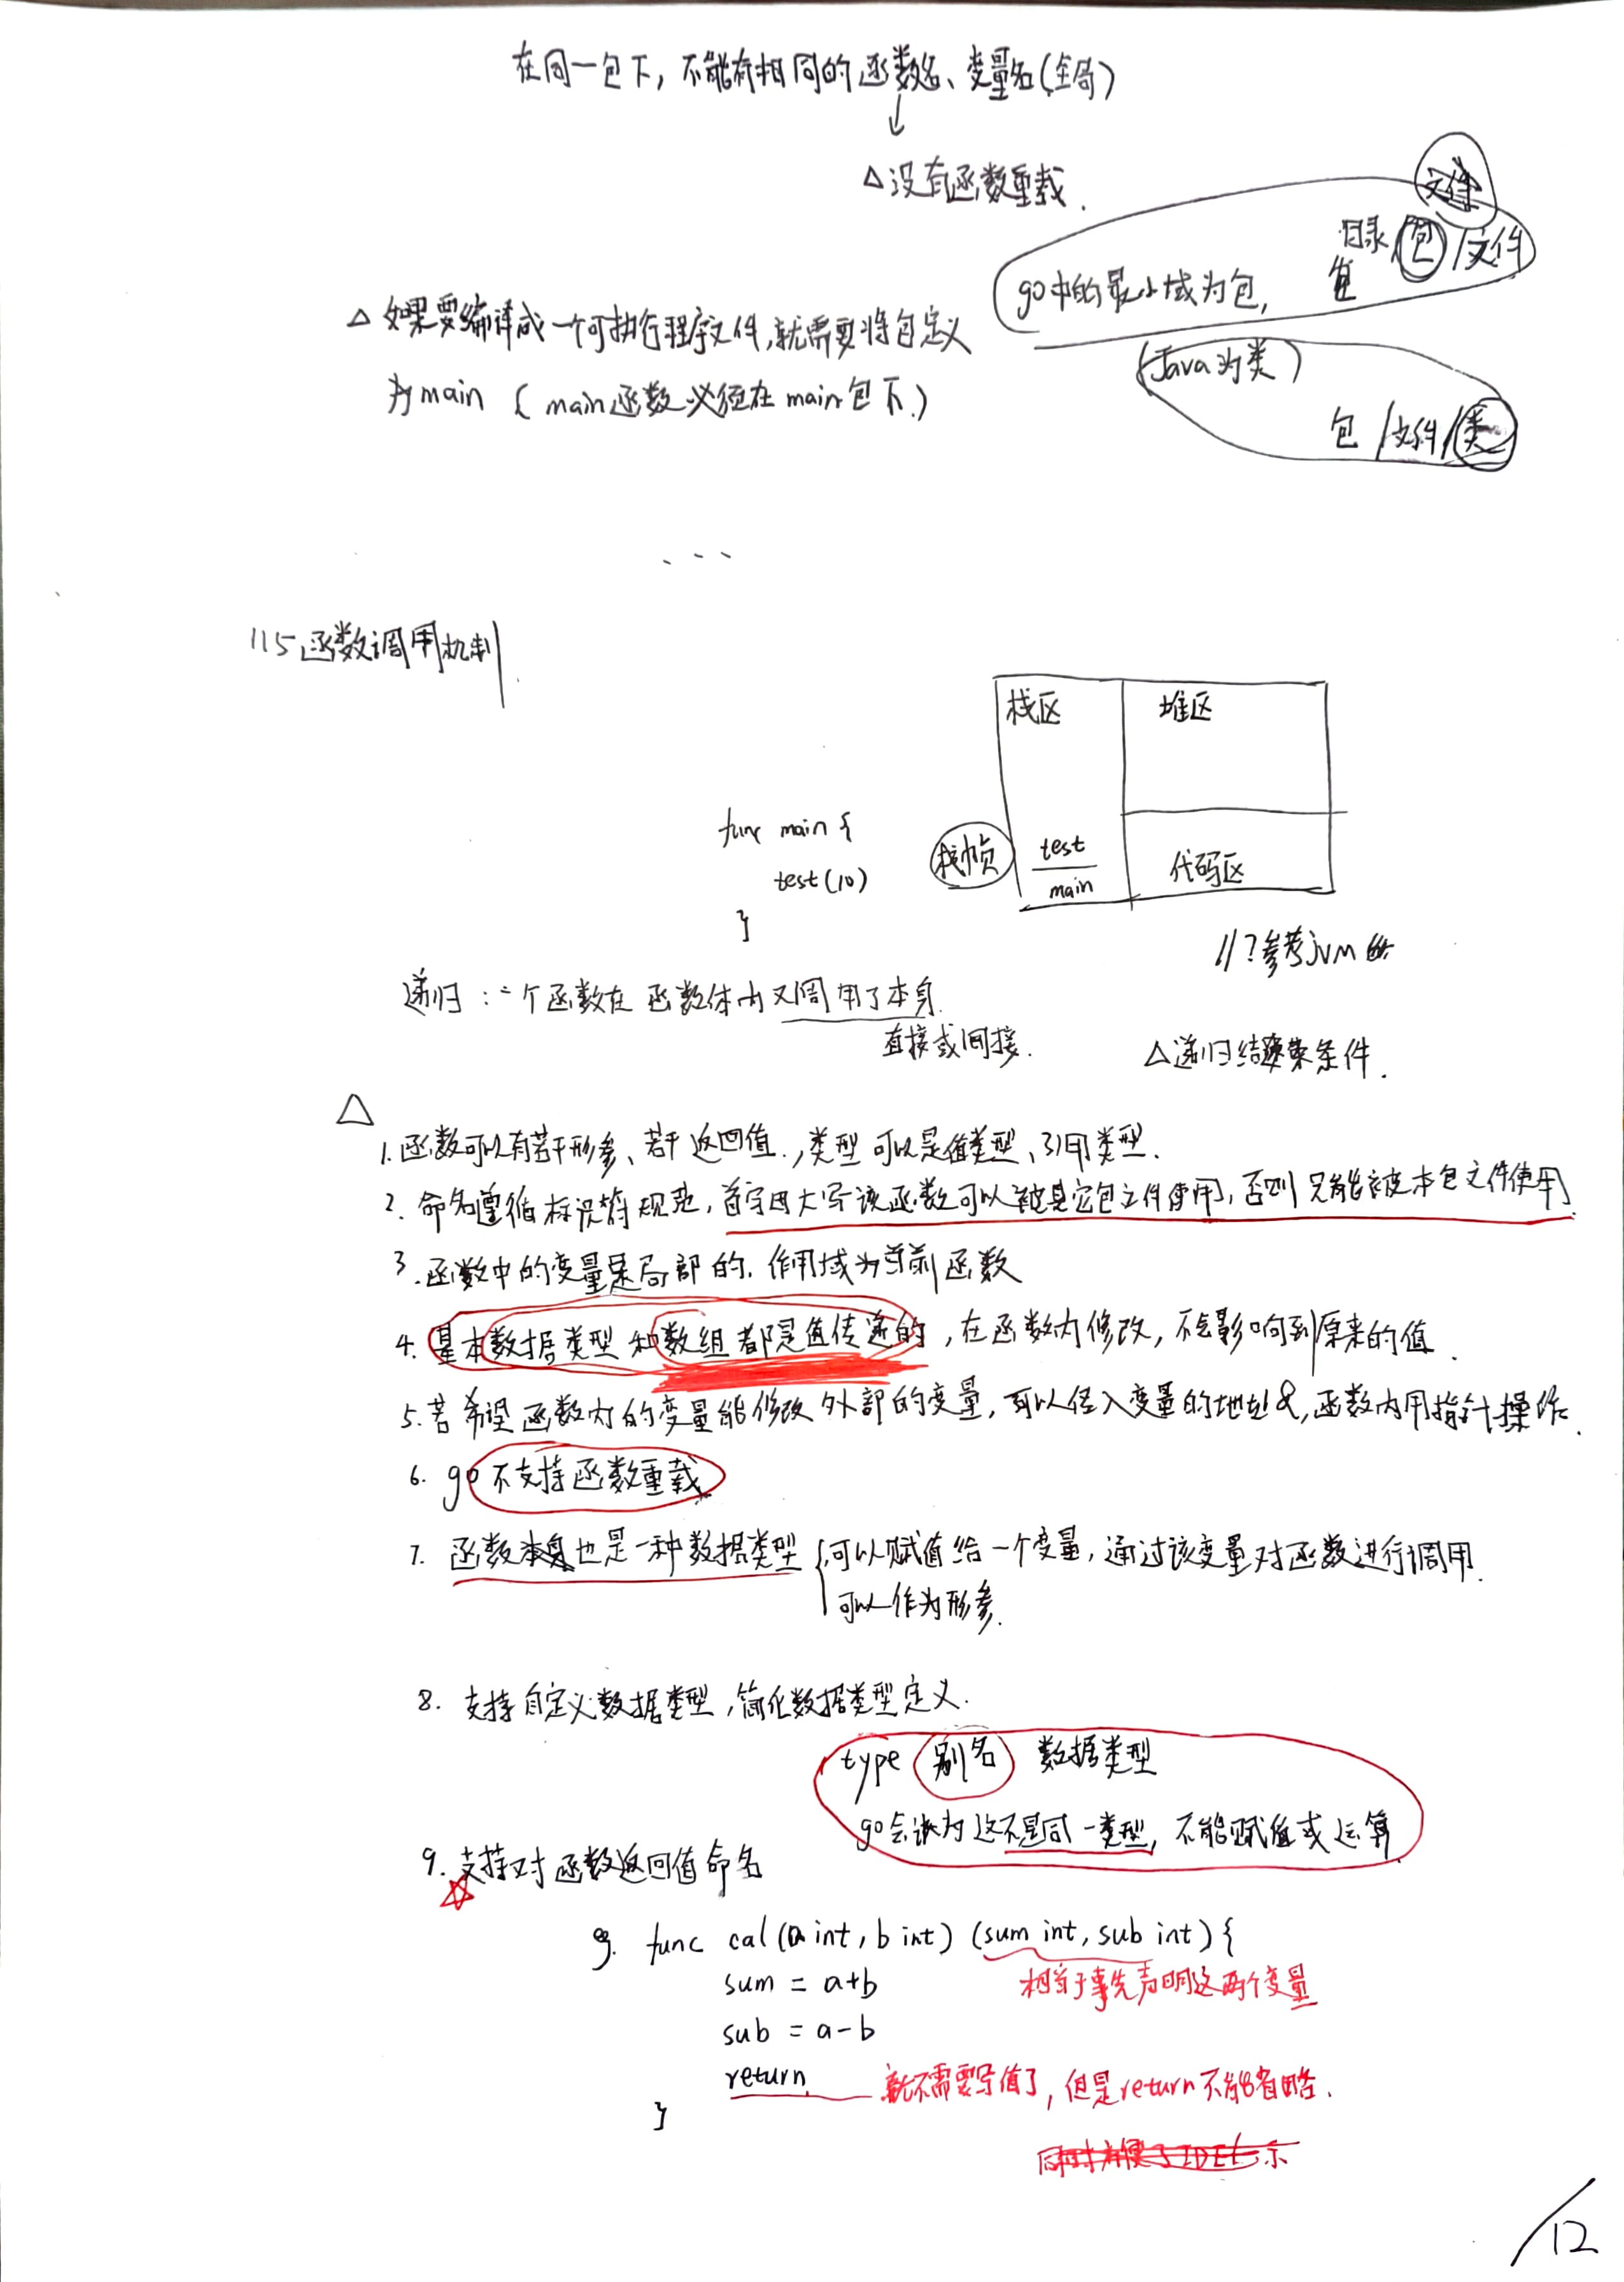 在同一包下，不能有相同的函数名、变量名(全局)
△没有函数重载.
文件
目录 包 /文件
go中的最小域为包,
△如果要编译成一个可执行程序文件,就需要将包定义
为main (main函数必须在main包下.)
(Java为类)
包 /文件/类
...
115函数调用机制
栈区 堆区
func main {
test(10)
}
栈帧 test
main
代码区
//?参考jvm
递归：一个函数在函数体内又调用了本身.
直接或间接.
△递归结束条件.
△
1.函数可以有若干形参、若干返回值.,类型可以是值类型、引用类型.
2.命名遵循标识符规范,首字母大写该函数可以被其它包文件使用,否则只能被本包文件使用.
3.函数中的变量是局部的.作用域为当前函数
4.基本数据类型和数组都是值传递的,在函数内修改,不会影响到原来的值.
5.若希望函数内的变量能修改外部的变量,可以传入变量的地址&,函数内用指针操作.
6.go不支持函数重载
7.函数本身也是一种数据类型{可以赋值给一个变量,通过该变量对函数进行调用.
可以作为形参.
8.支持自定义数据类型,简化数据类型定义.
type 别名 数据类型
go会认为这不是同一类型,不能赋值或运算
9.支持对函数返回值命名
eg. func cal(a int, b int) (sum int, sub int) {
sum = a+b
相当于事先声明这两个变量
sub = a-b
return 就不需要写值了,但是return不能省略.
}
12